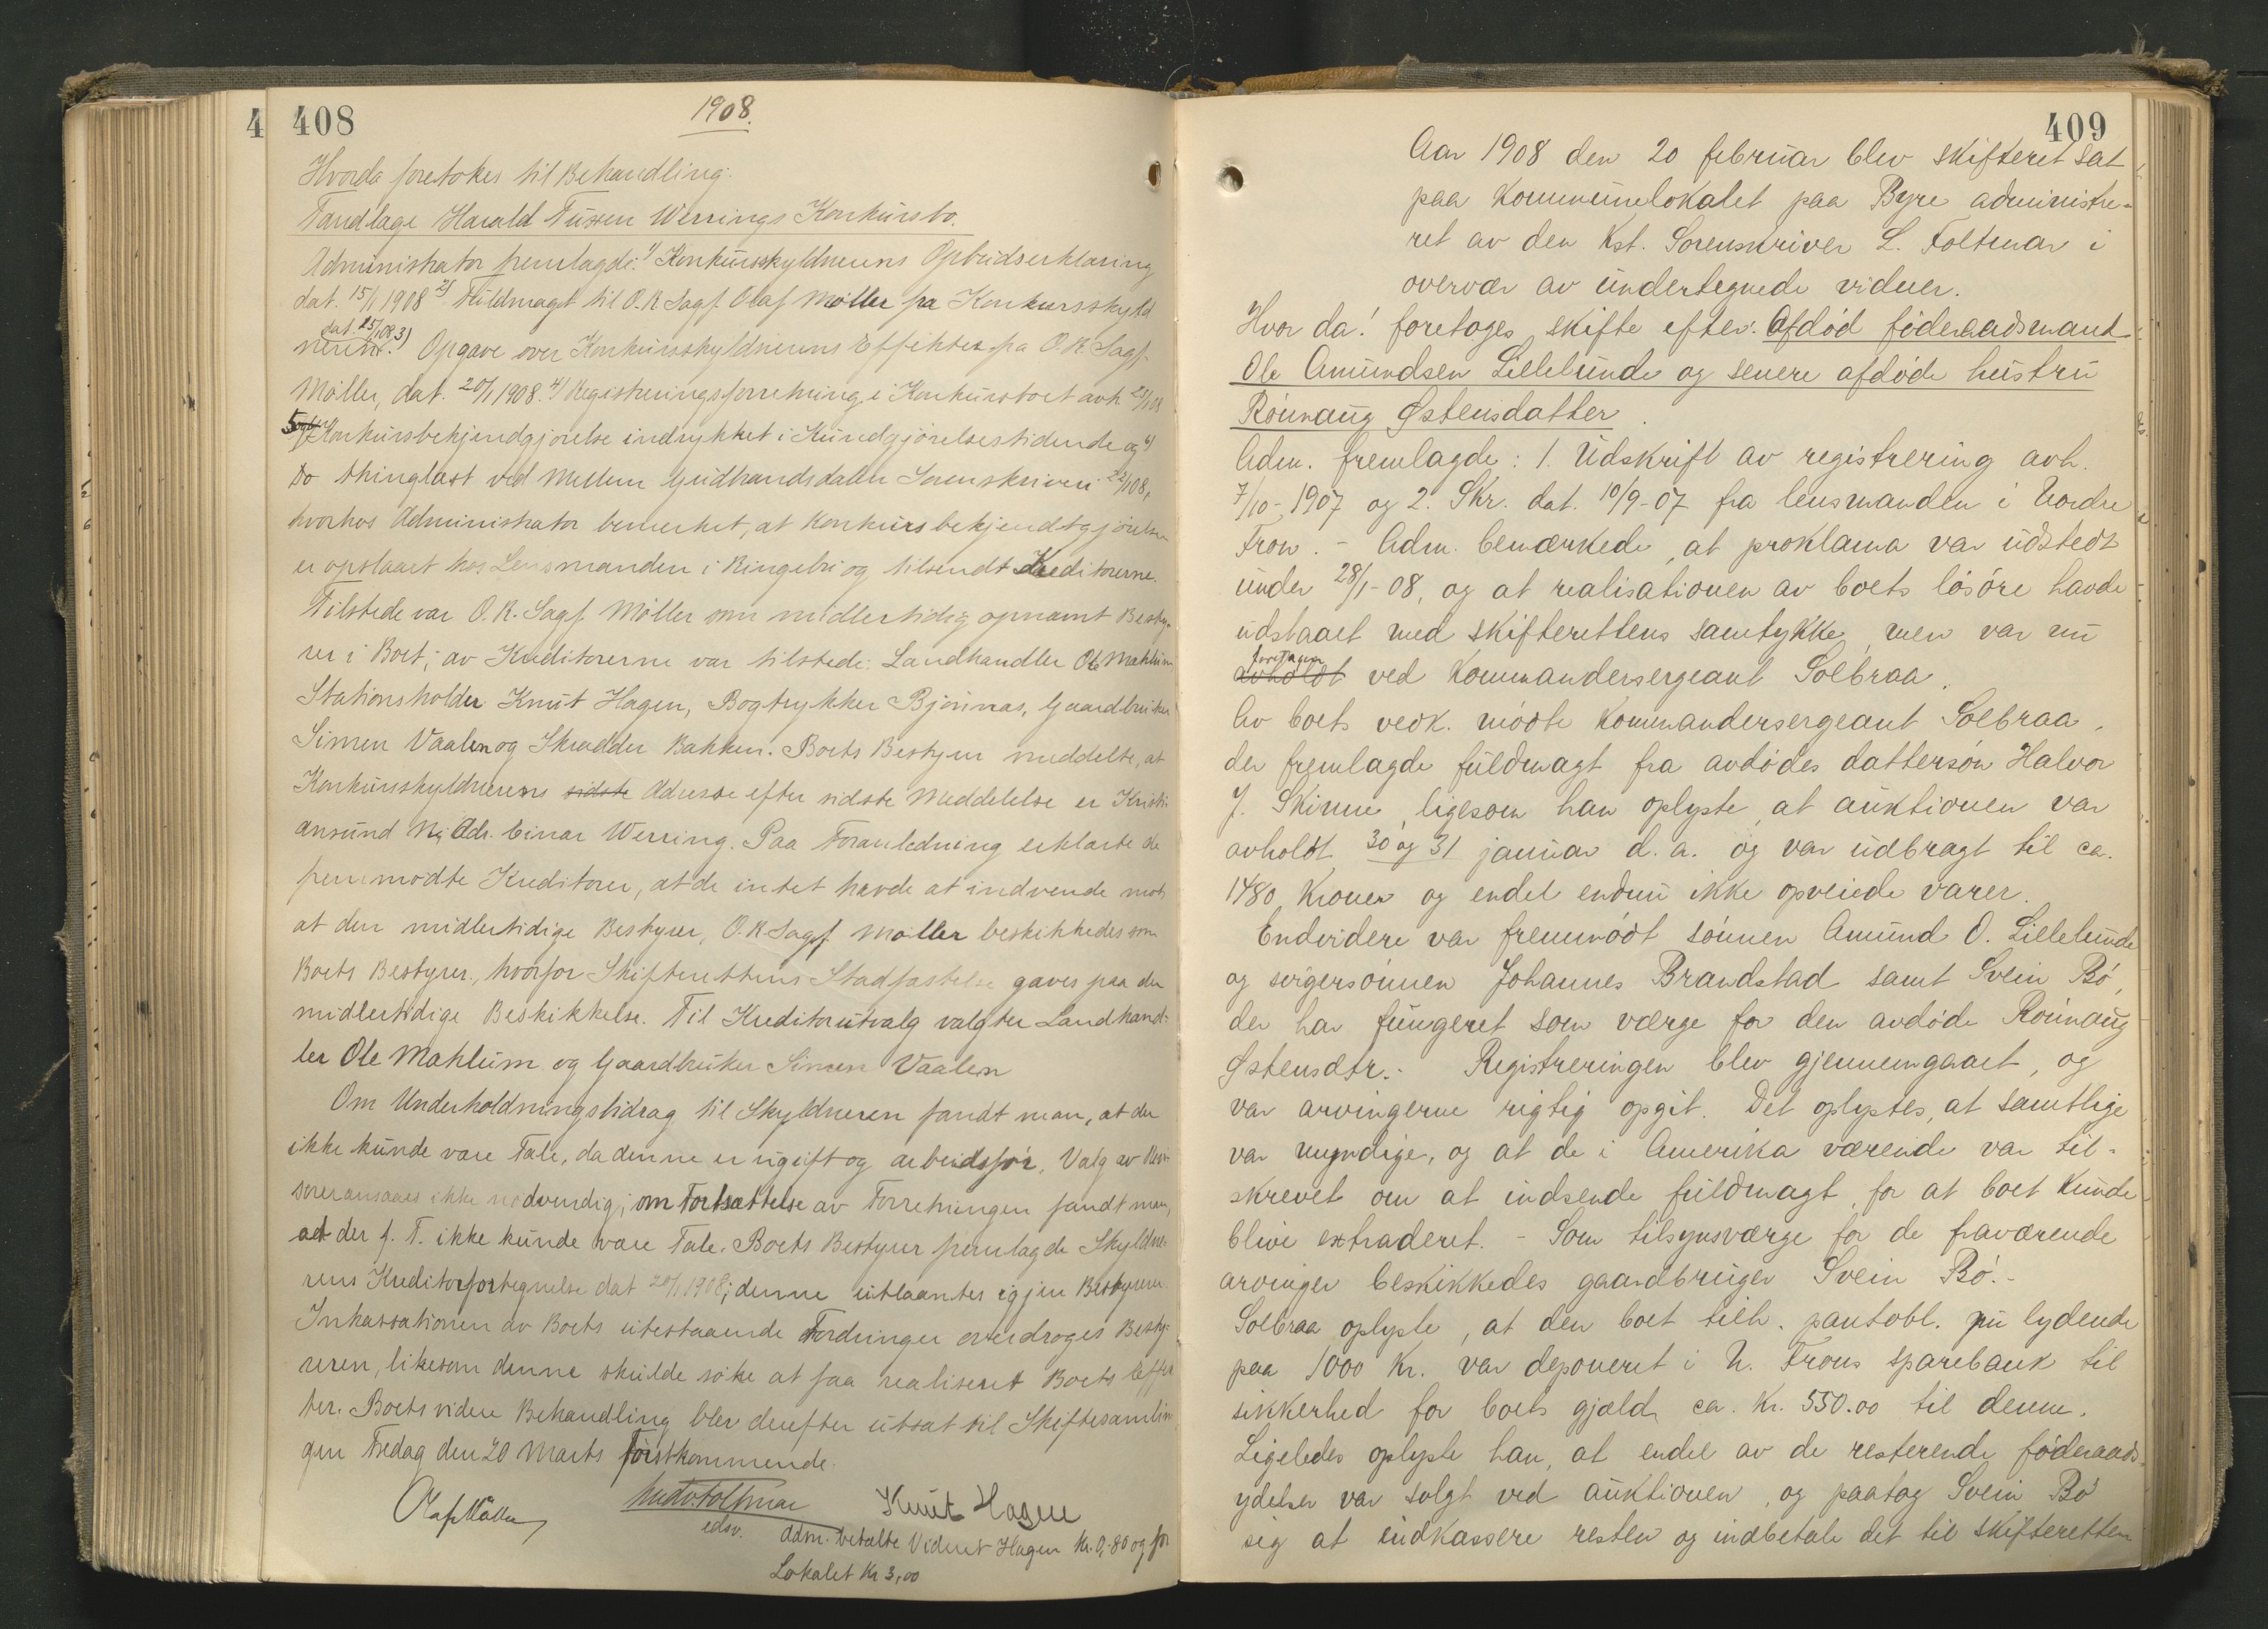 4 408
1908.
Hvorda foretokes til Behandling:
Tandlæge Harald Tussen Werrings Konkursbo.
Administrator fremlagde: 1) Konkursskyldnerens Opbudserklæring
dat. 15/1 1908 2) Fuldmagt til O.R. Sagf. Olaf Møller fra Konkursskyld
dat. 15/1 08
neren. 3) Opgave over Konkursskyldnerens Effekter fra O.R. Sagf.
Møller, dat. 20/1 1908. 4) Registreringsforretning i Konkursboet avh.
5 Konkursbekjendgjørelse indrykket i Kundgjørelsestidende og 6)
Do thinglæst ved Mellem Gudbrandsdalen Sorenskriveri 22/1 08,
hvorhos Administrator bemerket, at Konkursbekjendtgjørelsen
er opslaaet hos Lensmanden i Ringebu og tilsendt Kreditorerne.
Tilstede var O.R. Sagf. Møller som midlertidig opnævnt Besty-
rer i Boet; av Kreditorerne var tilstede: Landhandler Ole Mæhlum
Stationsholder Knut Hagen, Bogtrykker Bjørnnas, Gaardbruker
Simen Vaalen og Skrædder Bakken. Boets Bestyrer meddelte, at
Konkursskyldnerens sidste Adresse efter sidste Meddelelse er Kristi-
ansund N, Adr. Einar Werring. Paa Foranledning erklærte de
fremmødte Kreditorer, at de intet havde at indvende mot
at den midlertidige Bestyrer, O.R. Sagf. Møller beskikkedes som
Boets Bestyrer, hvorfor Skifterettens Stadfæstelse gaves paa den
midlertidige Beskikkelse. Til Kreditorutvalg valgtes Landhand-
ler Ole Mæhlum og Gaardbruker Simen Vaalen
Om Underholdningsbidrag til Skyldneren fandt man, at der
ikke kunde være Tale, da denne er ugift og arbeidsfør. Valg av Revi-
sorer ansaaes ikke nødvendig; om Fortsættelse av Forretningen fandt man,
at der f. T. ikke kunde være Tale. Boets Bestyrer fremlagde Skyldne-
rens Kreditorfortegnelse dat 20/1 1908; denne utlaantes igjen Bestyreren.
Inkassationen av Boets utestaaende Fordringer overdroges Besty-
reren, likesom denne skulde søke at faa realiseret Boets Effek
ter. Boets videre Behandling blev derefter utsat til Skiftesamlin
gen Fredag den 20 Marts førstkommende.
Olaf Møller Ludv. Foltmar Knut Hagen
edsv. Adm. betalte Vidnet Hagen Kr. 0,80 og for
Lokalet Kr 3,00
409
Aar 1908 den 20 februar blev skifteret sat
paa Kommunelokalet paa Byre administre-
ret av den Kst. Sorenskriver L. Foltmar i
overvær av undertegnede vidner.
Hvor da! foretoges skifte efter: Afdød føderaadsmand
Ole Amundsen Lillelunde og senere afdøde hustru
Rönnaug Østensdatter.
Adm. fremlagde: 1. Udskrift av registrering avh.
7/10-1907 og 2. Skr. dat. 10/9-07 fra lensmanden i Nordre
Fron. - Adm. bemærkede, at proklama var udstedt
under 28/1-08, og at realisationen av boets lösöre havde
udstaaet med skifterettens samtykke, men var nu
foretagen
avholdt ved Kommandersergeant Solbraa.
Av boets vedk. mødte Kommandersergeant Solbraa,
der fremlagde fuldmagt fra avdødes dattersøn Halvor
J. Skinne, ligesom han oplyste, at auktionen var
avholdt 30 og 31 januar d. a. og var udbragt til ca.
1480 Kroner og endel endnu ikke opveiede varer.
Endvidere var fremmødt sønnen Amund O. Lillelunde
og svigersønnen Johannes Brandstad samt Svein Bö,
der har fungeret som værge for den avdøde Rönnaug
Østensdtr. - Registreringen blev gjennemgaaet, og
var arvingerne rigtig opgit. Det oplystes, at samtlige
var myndige, og at de i Amerika værende var til-
skrevet om at indsende fuldmagt, for at boet kunde
blive extraderet. - Som tilsynsværge for de fraværende
arvinger beskikkedes gaardbruger Svein Bö. -
Solbraa oplyste, at den boet tilh. pantobl. nu lydende
paa 1000 Kr. var deponeret i N. Frons sparebank til
sikkerhed for boets gjæld ca. Kr. 550.00 til denne.
Ligeledes oplyste han, at endel av de resterende føderaads-
ydelser var solgt ved auktionen, og paatog Svein Bö
sig at indkassere resten og indbetale det til skifteretten